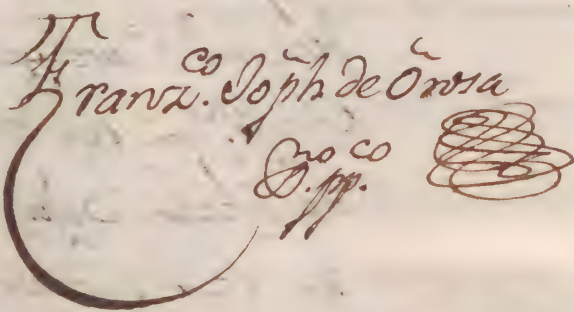 Franz.co Joph de Orosa
S.no pp.co